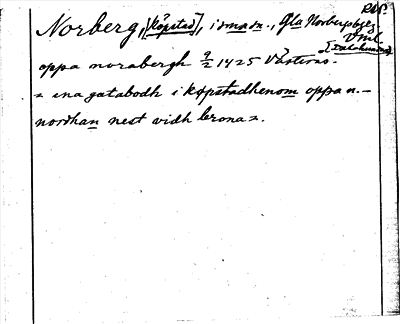 RAP.
Norberg, [köpstad], i Norbergsbge,
Vml
oppa norabergh 9/2 1425 Västerås.
= ena gatabodh i köpstadhenom oppa n.–
nordhan nest vidh brona =.